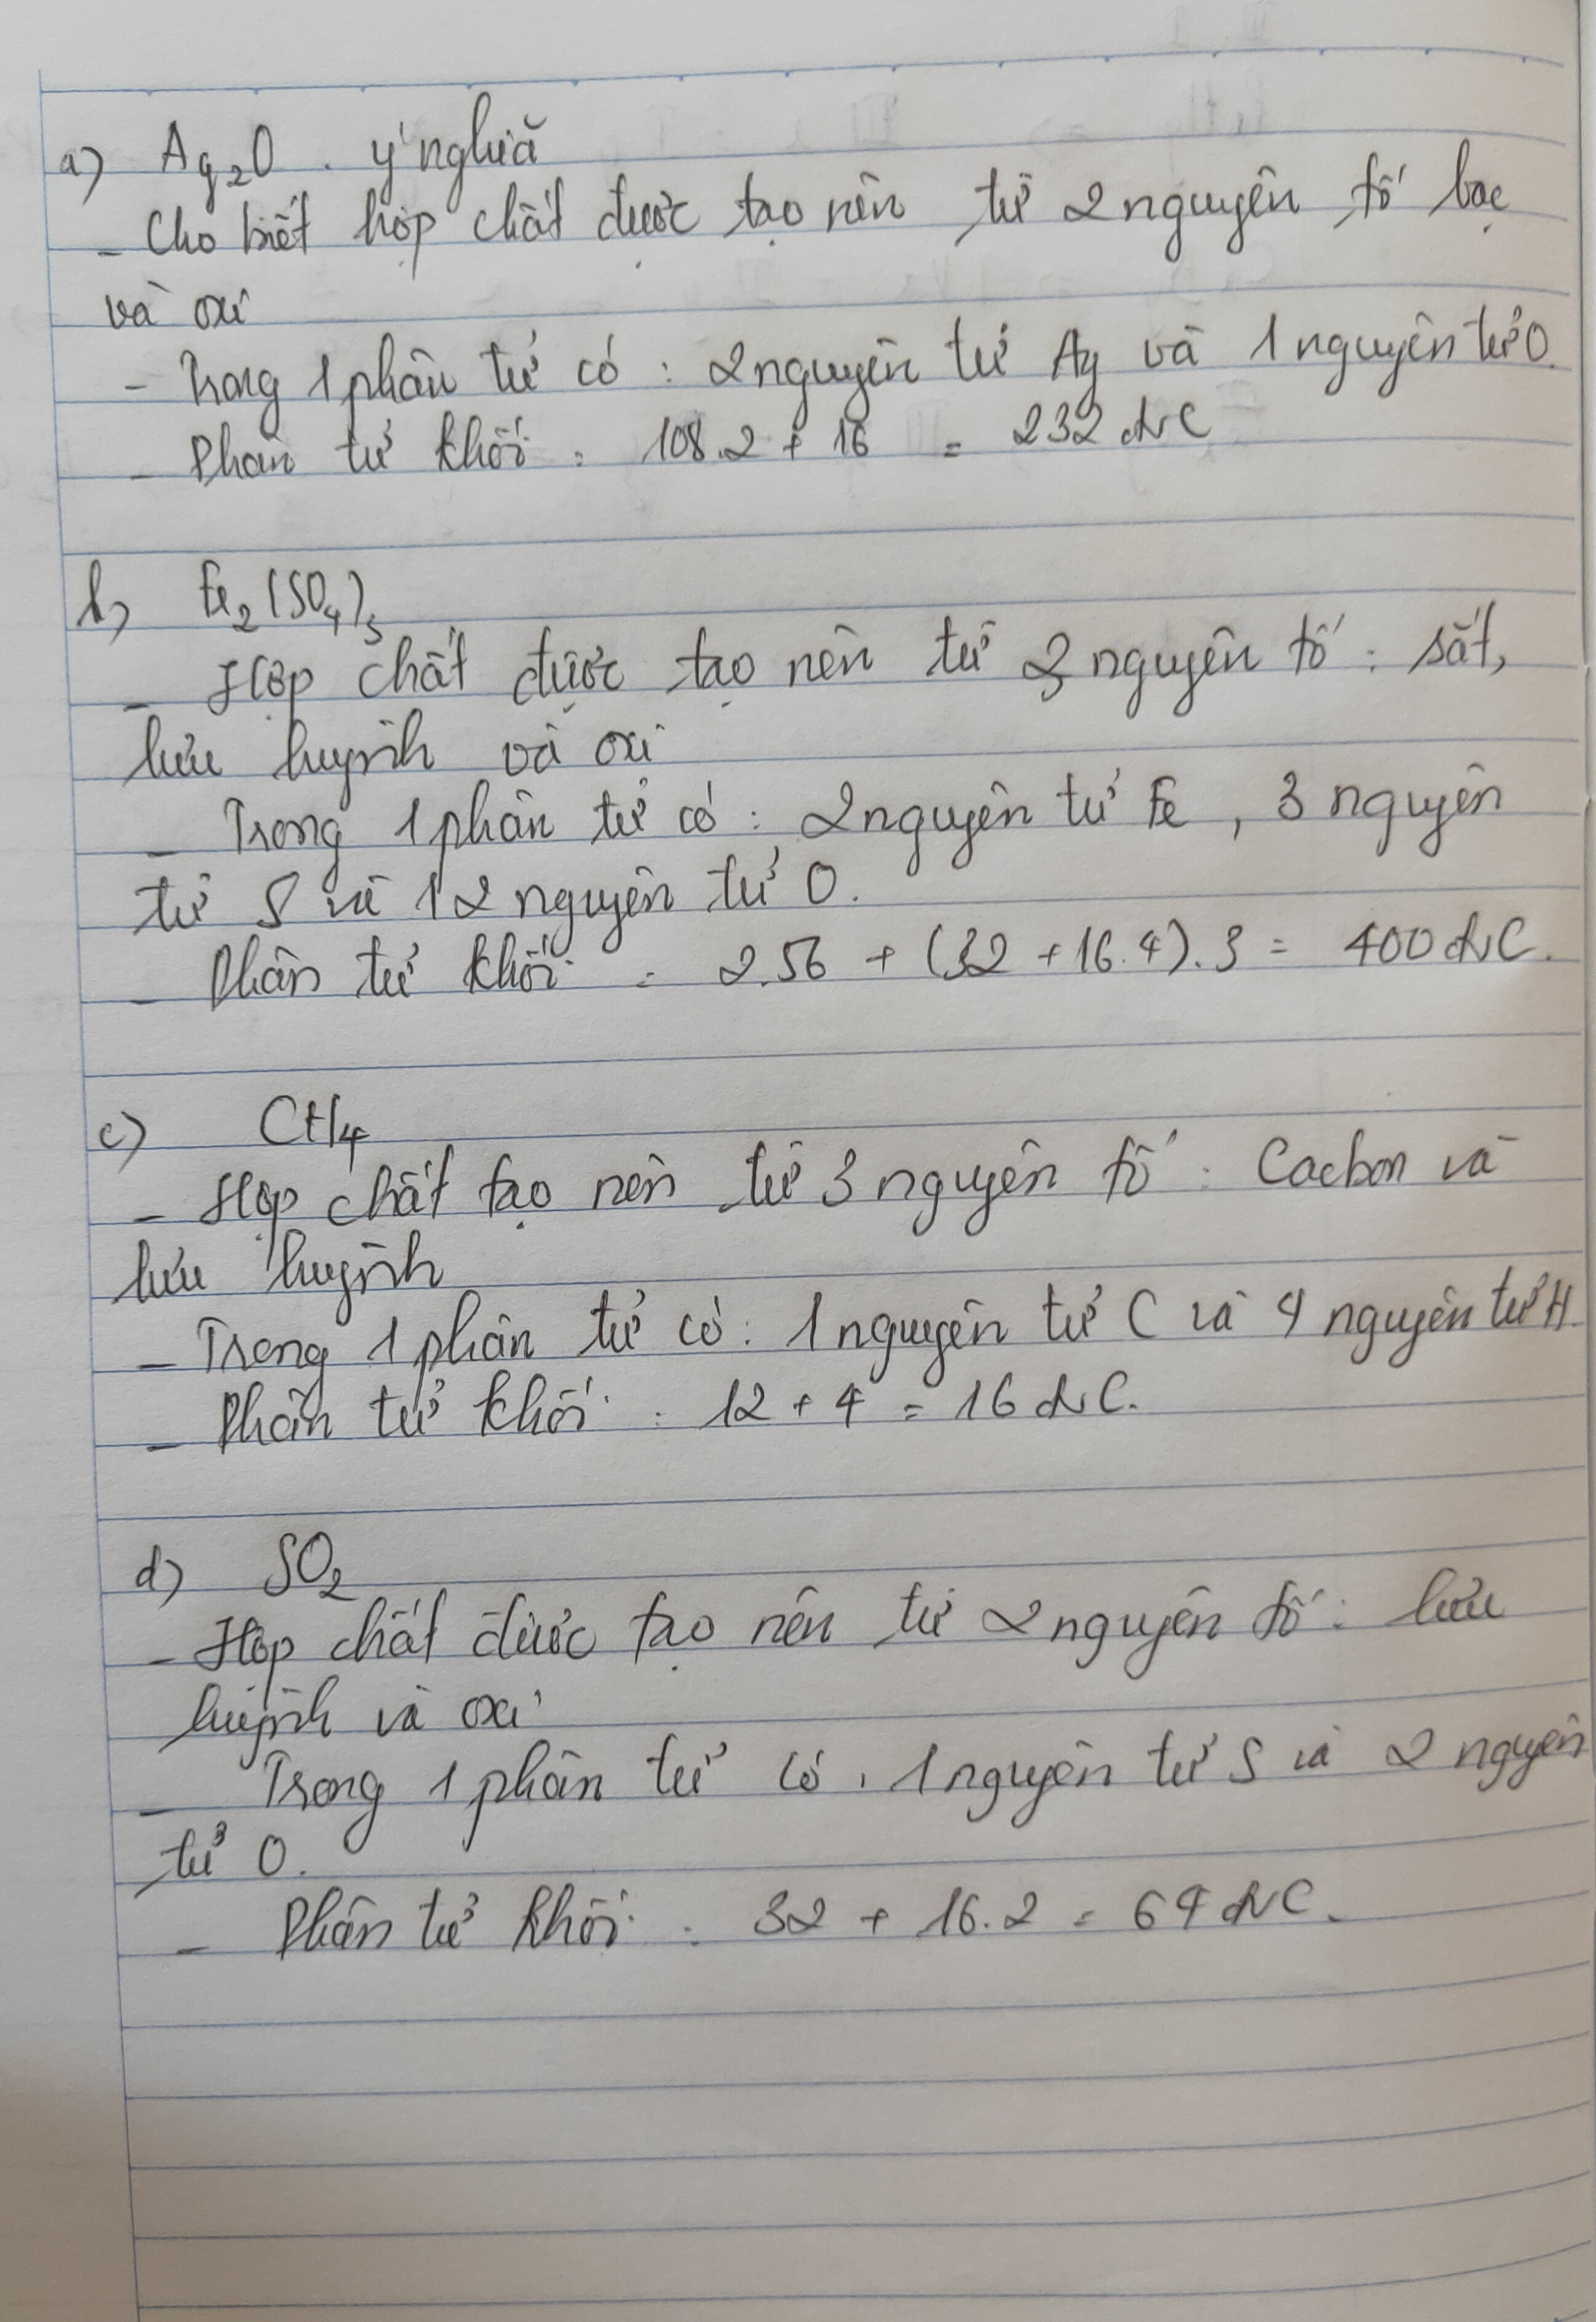 a) Ag₂O . ý nghĩa
- Cho biết hợp chất được tạo nên từ 2 nguyên tố bạc
và oxi
- Trong 1 phân tử có : 2 nguyên tử Ag và 1 nguyên tử O.
- Phân tử khối : 108.2 + 16 = 232 đvC
b) Fe₂(SO₄)₃
- Hợp chất được tạo nên từ 3 nguyên tố : sắt,
lưu huỳnh và oxi
- Trong 1 phân tử có : 2 nguyên tử Fe , 3 nguyên
tử S và 12 nguyên tử O.
- Phân tử khối : 2.56 + (32 + 16.4).3 = 400 đvC.
c) CH₄
- Hợp chất tạo nên từ 3 nguyên tố : Cacbon và
lưu huỳnh
- Trong 1 phân tử có : 1 nguyên tử C và 4 nguyên tử H.
- Phân tử khối : 12 + 4 = 16 đvC.
d) SO₂
- Hợp chất được tạo nên từ 2 nguyên tố : lưu
huỳnh và oxi
- Trong 1 phân tử có : 1 nguyên tử S và 2 nguyên
tử O.
- Phân tử khối : 32 + 16.2 = 64 đvC.